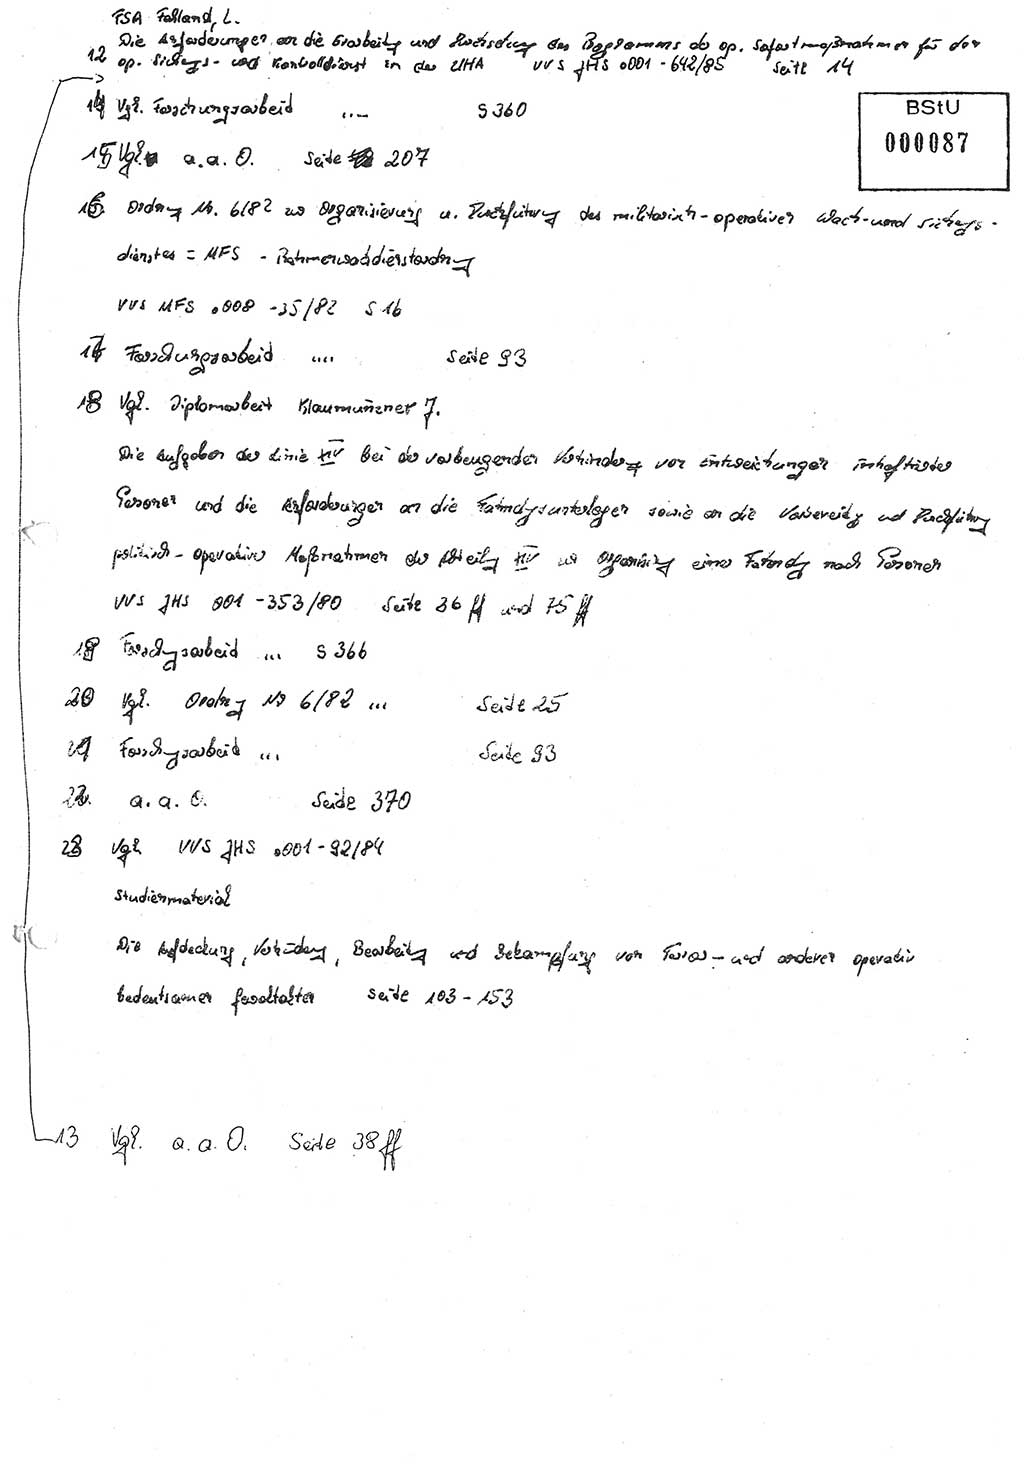 FSA Fahland, L.
12 Die Anforderungen an die Erarbeitung und Durchsetzung des Programms der op. Sofortmaßnahmen für den
op. Sicherungs- und Kontrolldienst in der UHA VVS JHS o001-642/85 Seite 14
14 Vgl. Forschungsarbeid ... S 360
BStU
000087
15 Vgl. a.a.O. Seite 207
16. Ordnung Nr. 6/82 zur Organisierung u. Durchführung des militärisch-operativen Wach- und Sicherungs-
dienstes = MFS - Rahmenwachdienstordnung
VVS MFS o008 -35/82 S 16
17 Forschungsarbeid .... Seite 93
18 Vgl. Diplomarbeit Klaumünzner J.
Die Aufgaben der Linie XIV bei der vorbeugenden Verhinderung von Entweichungen inhaftierter
Personen und die Anforderungen an die Fahndungsunterlagen sowie an die Vorbereitung und Durchführung
politisch-operativer Maßnahmen der Abteilung XIV zur Organisierung einer Fahndung nach Personen
VVS JHS 001 -353/80 Seite 36 ff und 75 ff
19 Forschungsarbeid ... S 366
20 Vgl. Ordnung Nr 6/82 ... Seite 25
21 Forschungsarbeid ... Seite 93
22. a.a.O. Seide 370
23 Vgl. VVS JHS o001-92/84
Studienmaterial
Die Aufdeckung, Verhinderung, Bearbeitung und Bekämpfung von Terror- und anderen operativ
bedeutsamen Gewaltakten Seite 103-153
13 Vgl. a.a.O. Seite 38 ff